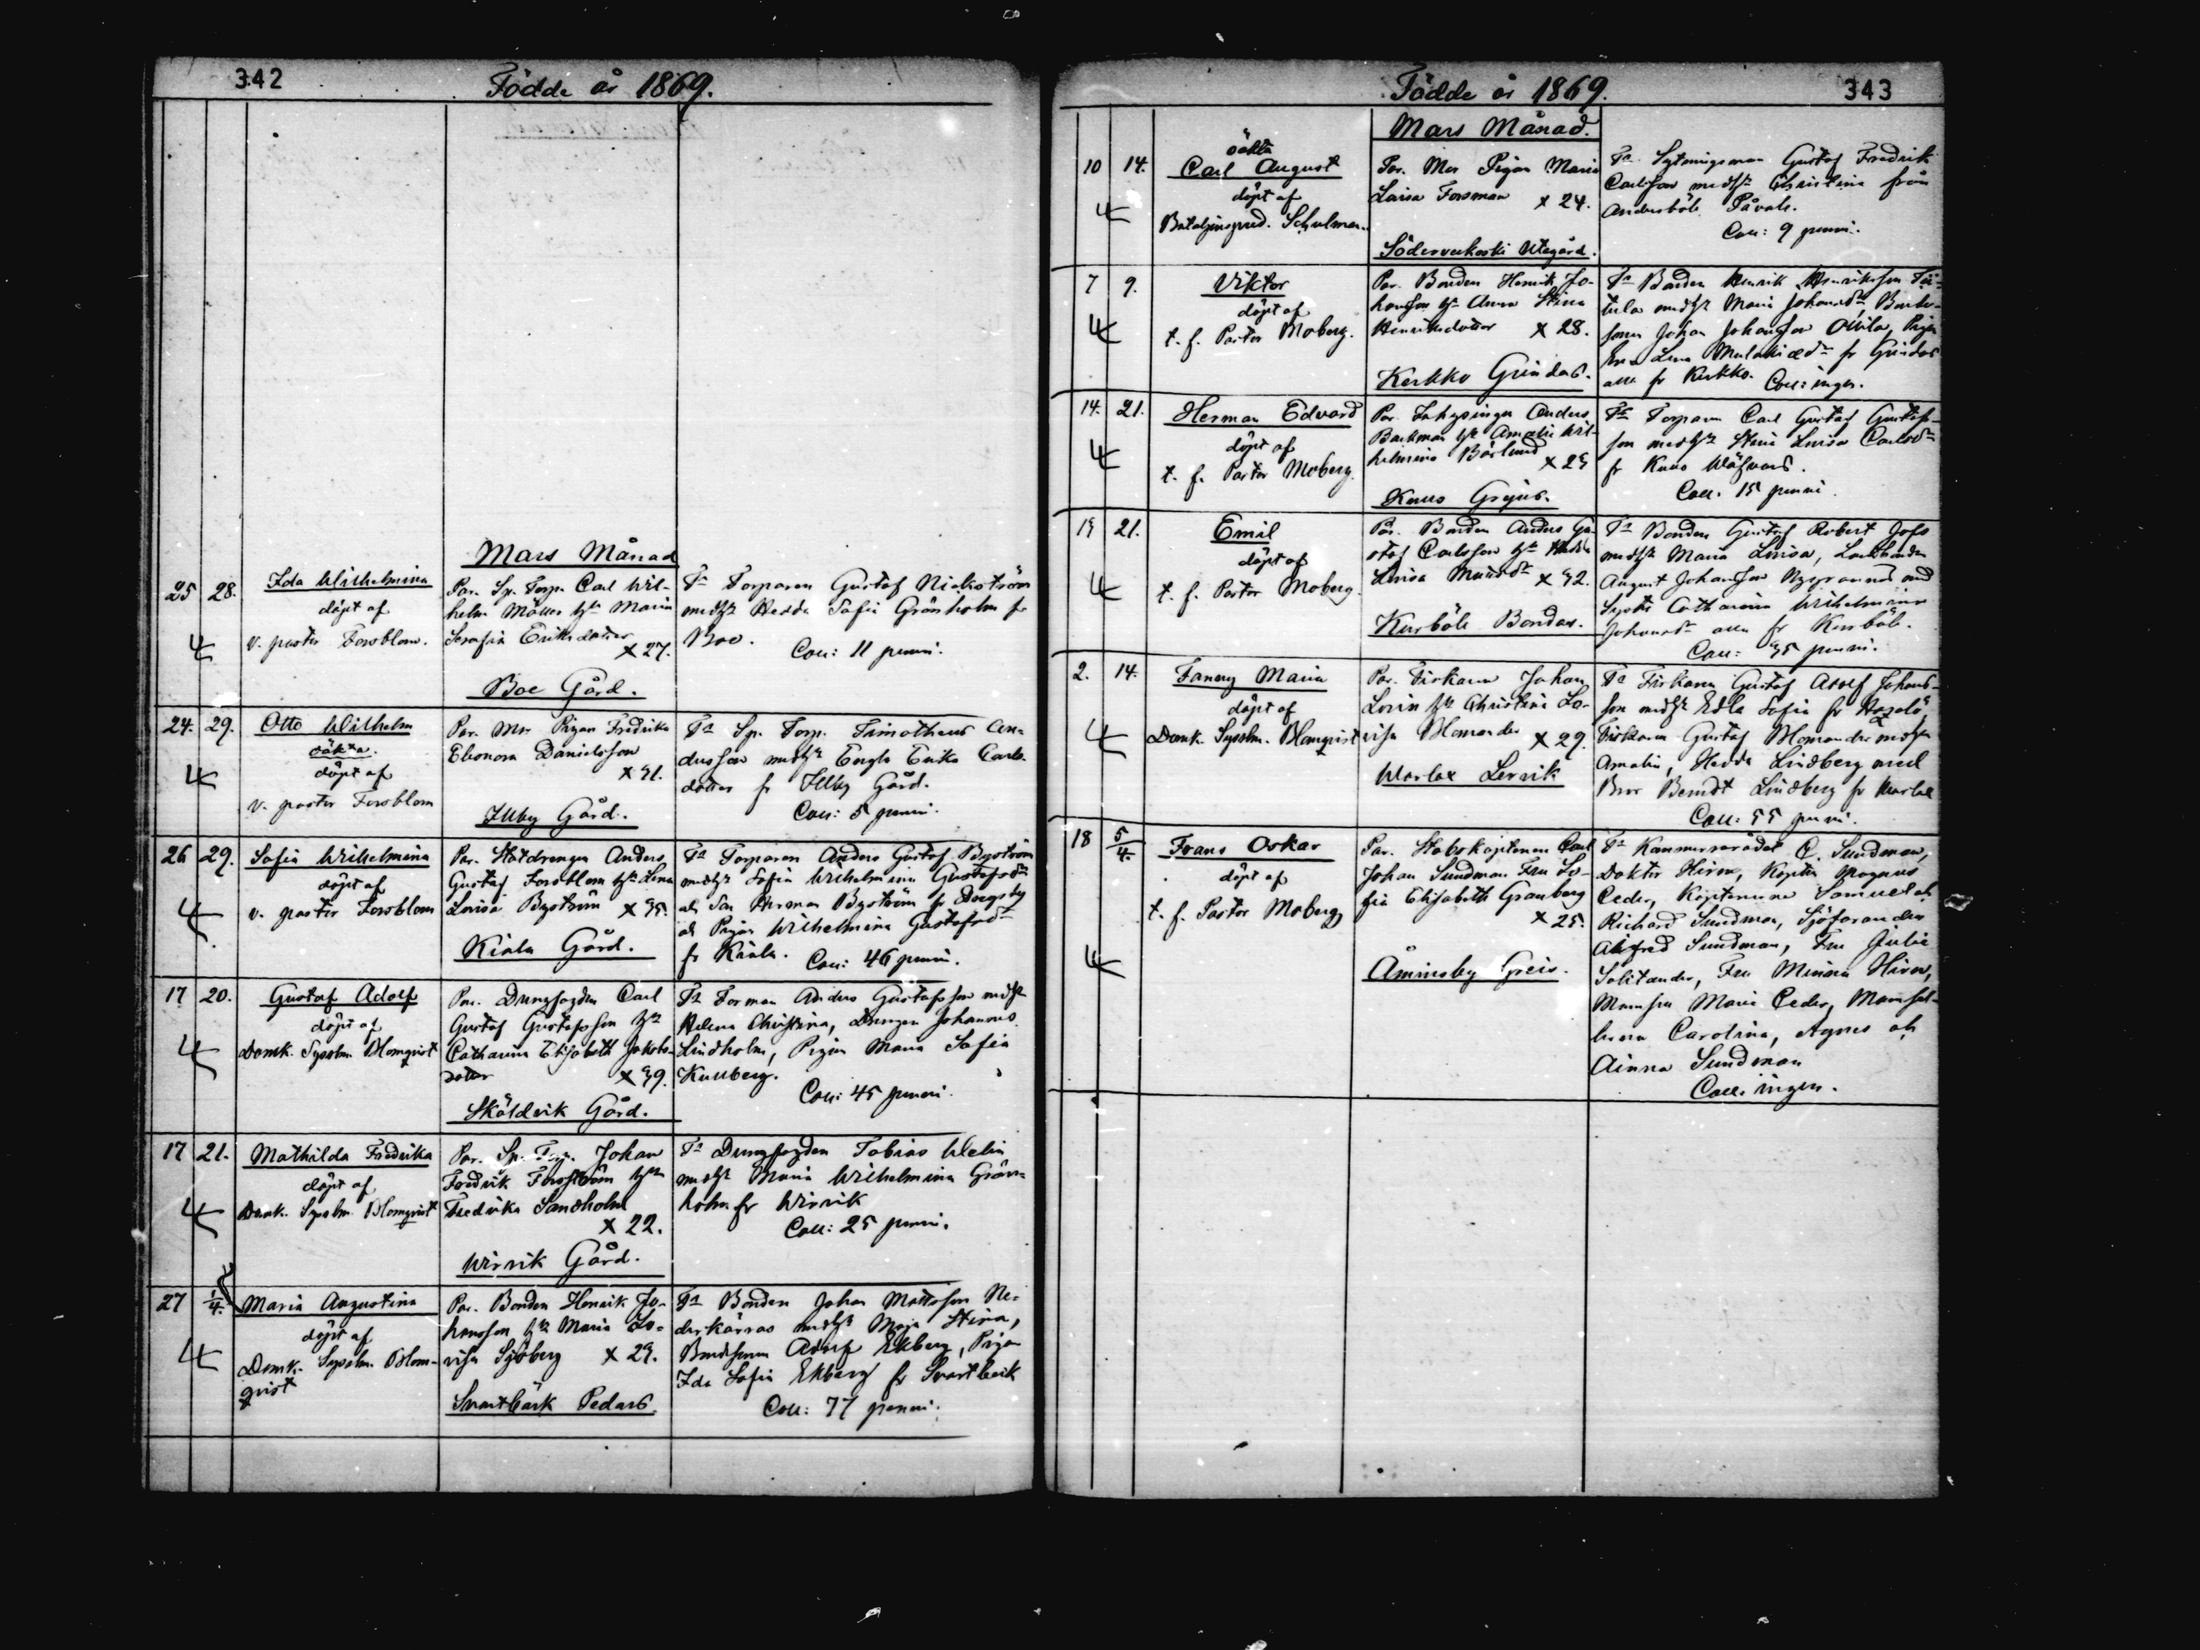 342
Födde år 1869.
Mars Månad
25 28. Ida Wilhelmina
döpt af
v. pastor Forsblom.
Par. Sp. Torp. Carl Wil-
helm Möller h:u Maria
Serafia Eriksdotter
x 27.
Boe Gård.
Fr Torparen Gustaf Nickström
med h:u Hedda Sofia Grönholm fr
Boe.
Coll: 11 penni.
24. 29. Otto Wilhelm
oäkta.
döpt af
v. pastor Forsblom
Par. Mor Pigan Fredrika
Eleonora Danielsson
x 31.
Illby Gård.
Fr Sp. Torp. Timotheus An-
dersson med h:u Engla Erika Carls-
dotter fr Illby Gård.
Coll: 5 penni.
26 29. Sofia Wilhelmina
döpt af
v. pastor Forsblom
Par. Statdrengen Anders
Gustaf Forsblom h:u Lena
Lovisa Byström x 35.
Kiala Gård.
Fr Torparen Anders Gustaf Byström
med h:u Sofia Wilhelmina Gustafsdr
och Herman Byström fr
och Pigan Wilhelmina Gustafsdr
fr Kiala. Coll: 46 penni.
17 20. Gustaf Adolf
döpt af
Domk. Sysslm. Blomqvist
Par. Drengfogden Carl
Gustaf Gustafsson h:u
Catharina Elisabeth Jakobs-
dotter x 39.
Sköldvik Gård.
Fr Forman Anders Gustafsson med h:u
Helena Christina, Drengen Johannes
Lindholm, Pigan Maria Sofia
Kullberg.
Coll: 45 penni.
17 21. Mathilda Fredrika
döpt af
Domk. Sysslm. Blomqvist
Par. Sp. Torp. Johan
Fredrik Forsström h:u
Fredrika Sandholm
x 22.
Wirvik Gård.
Fr Drengfogden Tobias Welin
med h:u Maria Wilhelmina Grön-
holm fr Wirvik
Coll: 25 penni.
27 1/4. Maria Augustina
döpt af
Domk. Sysslm. Blom-
qvist
Par. Bonden Henrik Jo-
hansson h:u Maria Lo-
visa Sjöberg x 29.
Svartbäck Pedars
Fr Bonden Johan Mattsson Ne-
derkärras med h:u Maja Stina,
Bondsonen Adolf Ekberg, Pigan
Ida Sofia Ekberg fr Svartbäck
Coll: 77 penni.
343
Födde år 1869.
Mars Månad.
10 14. oäkta
Carl August
döpt af
Bataljonspred. Schulman.
Par. Mor Pigan Maria
Lovisa Forsman x 24.
Söderveckoski Utegård.
Fr. Sytningsman Gustaf Fredrik
Carlsson med h:u Christina från
Andersböle Påvals.
Coll: 9 penni.
7 9. Viktor
döpt af
t. f. Pastor Moberg.
Par. Bonden Henrik Jo-
hansson h:u Anna Stina
Henriksdotter x 28.
Kerkko Grindas.
Fr Bonden Henrik Henriksson
med h:u Maria Johansdr, Bond-
sonen Johan Johansson Ollila, Pigan
Lena fr Grindas
alla fr Kerkko. Coll: ingen.
14. 21. Herman Edvard
döpt af
t. f. Pastor Moberg
Par. Inhysingen Anders
Backman h:u Amalia Wil-
helmina Bärlund
x 29
Kullo Grejus.
Fr Torparen Carl Gustaf Gustafs-
son med h:u Stina Lovisa Carlsdr
fr Kullo Wäfvars.
Coll. 15 penni.
19 21. Emil
döpt af
t. f. Pastor Moberg.
Par. Bonden Anders Gu-
staf Carlsson h:u Hedda
Lovisa x 32.
Kurböle Bondas.
Fr Bonden Gustaf Robert Jofs
med h:u Maria Lovisa, Landbonden
August Johansson med
Syster Catharina Wilhelmina
Johansdr alla fr Kurböle.
Coll: 35 penni.
2. 14. Fanny Maria
döpt af
Domk. Sysslm. Blomqvist
Par. Fiskaren Johan
Lorin h:u Christina Lo-
visa Blomander x 29.
Warlax Lervik
Fr Fiskaren Gustaf Adolf Johans-
son med h:u Edla Sofia fr
Fiskaren Gustaf Blomander med h:u
Amalia, Hedda Lindberg med
Bror Berndt Lindberg fr Warlax
Coll: 55 penni.
18 5/4. Frans Oskar
döpt af
t. f. Pastor Moberg
Par. Stabskapitenen Carl
Johan Sundman Fru So-
fia Elisabeth Granberg
x 25.
Åminsby Greis.
Fr Kammerrådet C. Sundman,
Doktor Hiren, Kapten Magnus
Ceder, Kaptenerne Samuel och
Richard Sundman, Sjöfaranden
Alfred Sundman, Fru Julie
Solitander, Fru Minna Hiren,
Mamsell Maria Ceder, Mamsel-
lerna Carolina, Agnes och
Ainna Sundman
Coll: ingen.